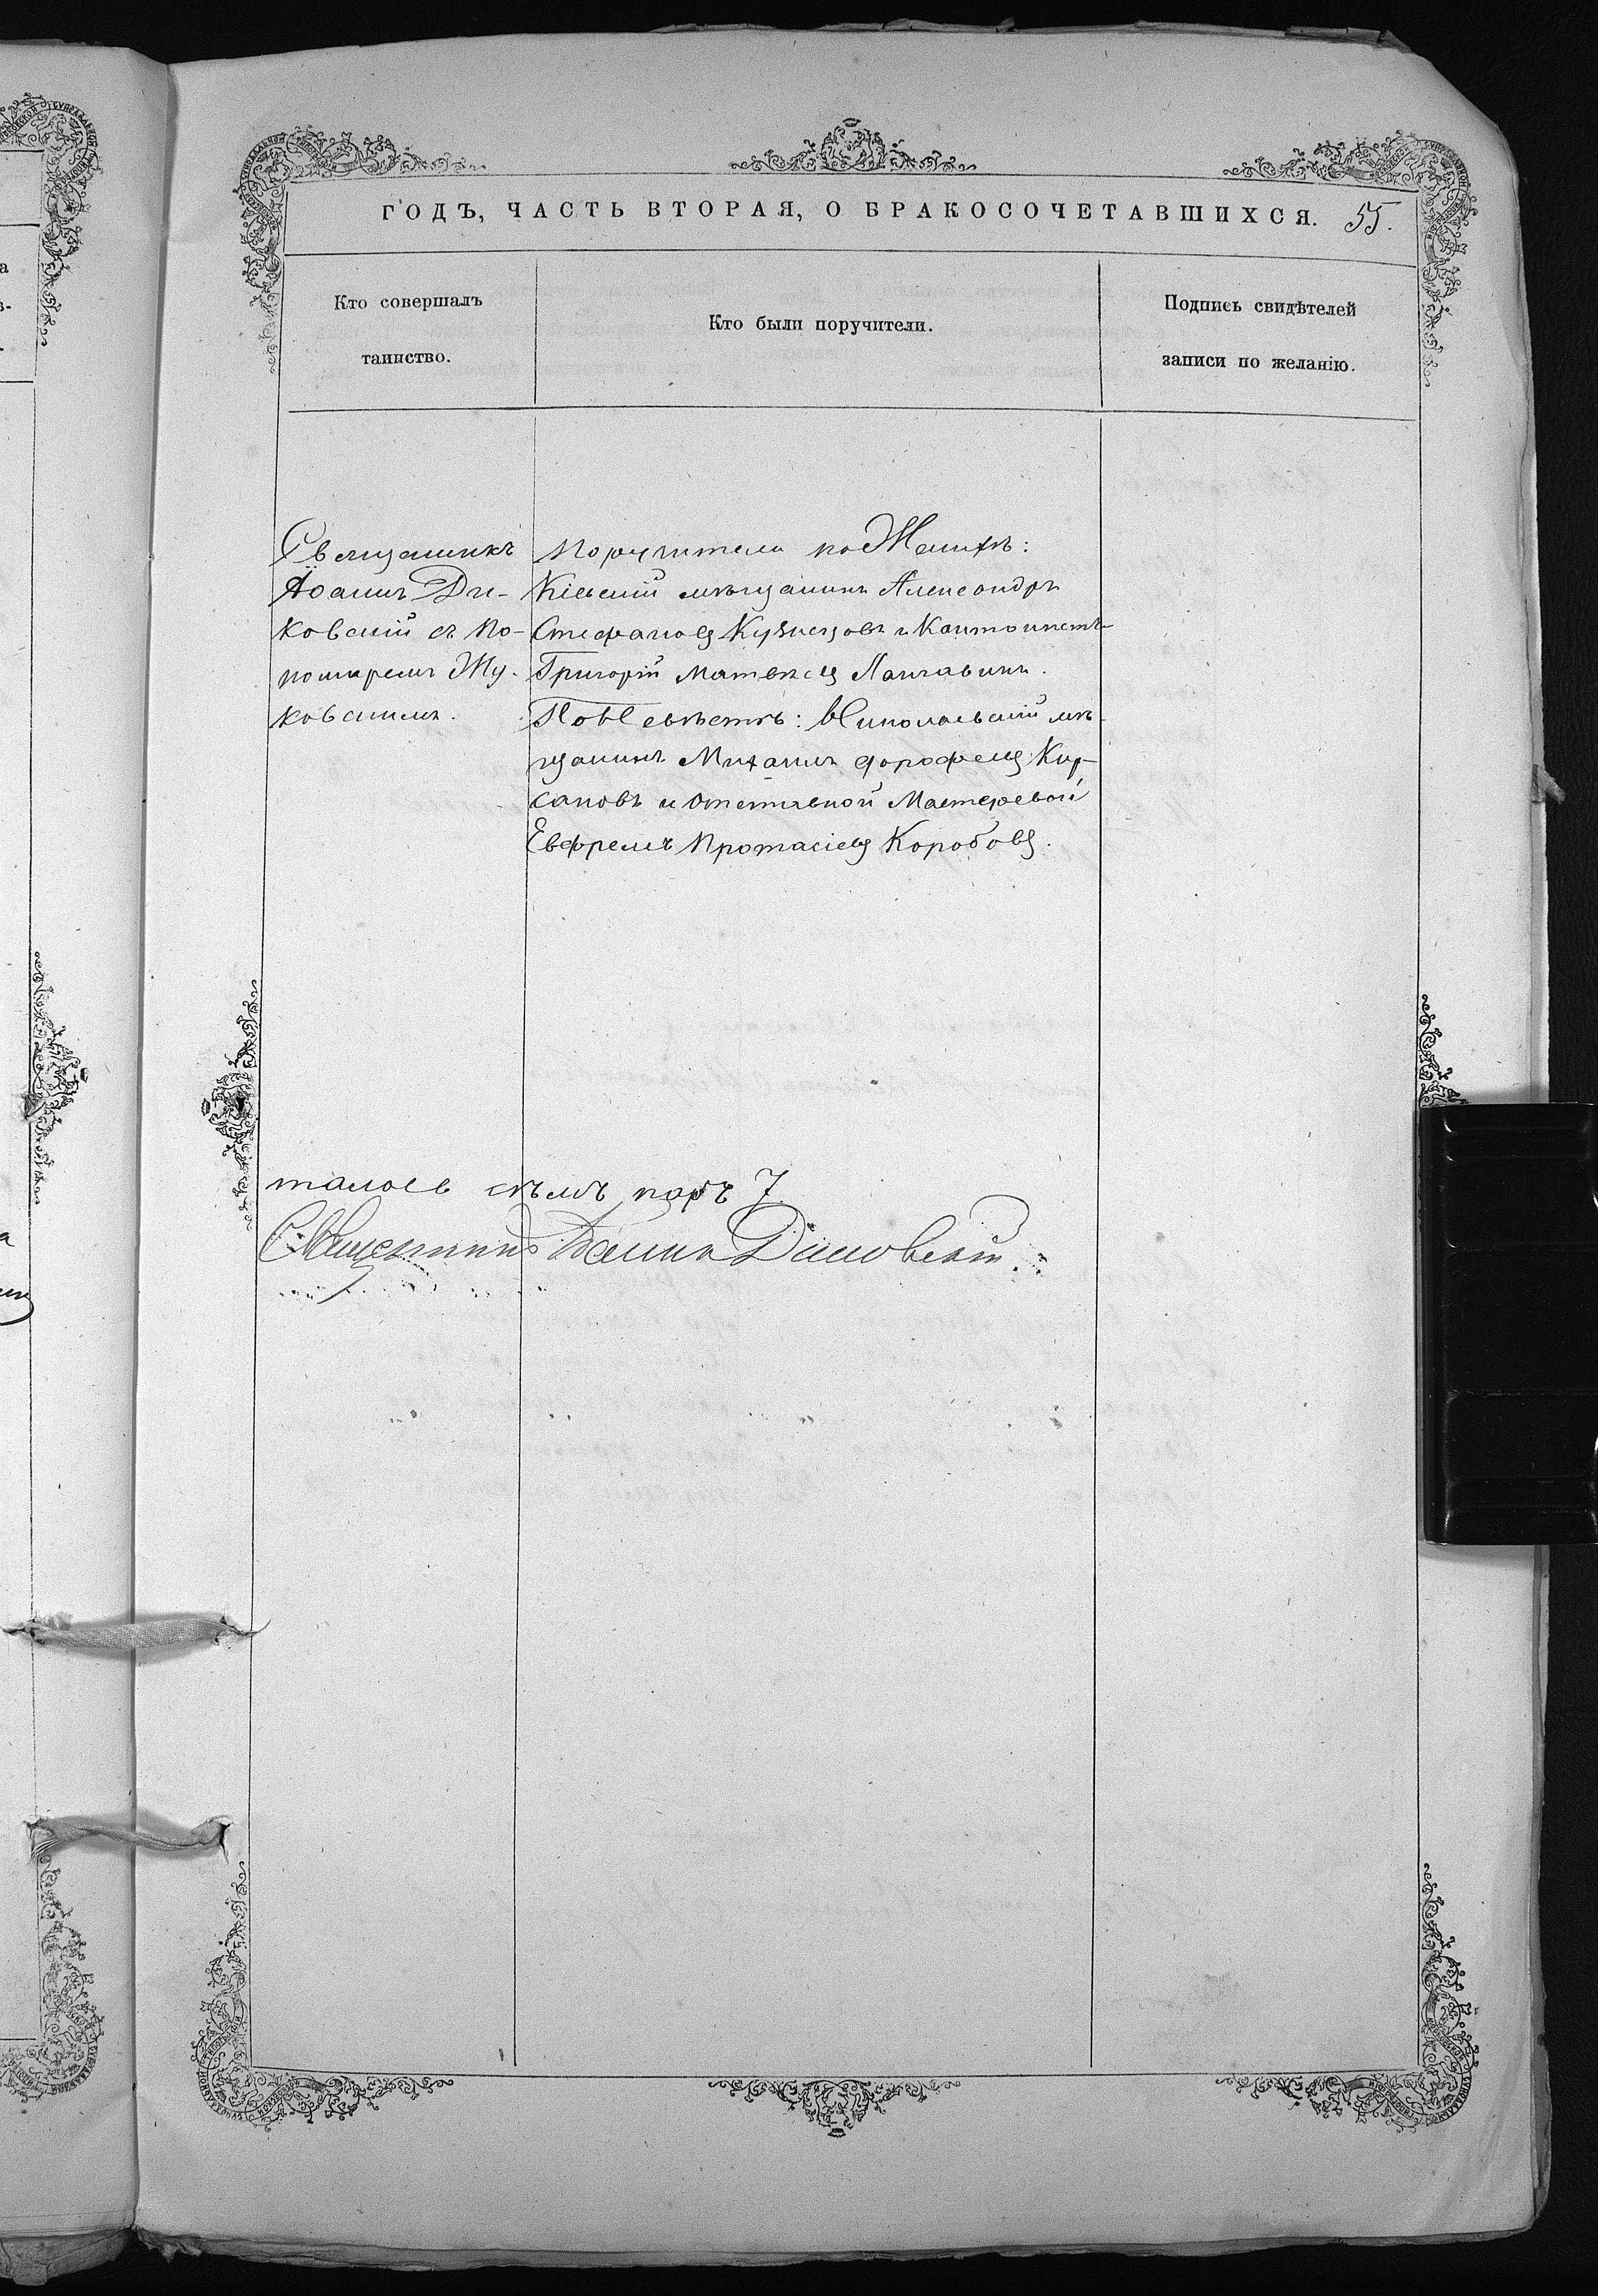 ГОДЪ, ЧАСТЬ ВТОРАЯ, О БРАКОСОЧЕТАВШИХСЯ. 55.
Кто совершалъ
таинство.
Кто были поручители.
Подпись свидѣтелей
записи по желанію.
Священникъ
Іоаннъ Ди-
ковскій съ По-
номаремъ Жу-
ковскимъ.
Поручители по Женихѣ:
Кіевскій мѣщанинъ Александръ
Стефановъ Кузнецовъ и Кантонистъ
Григорій Матвѣевъ
По Невѣстѣ: Николаевскій мѣ-
щанинъ Михаилъ Дорофеевъ Кир-
сановъ и отставной Мастеровой
Евфремъ Протасіевъ Коробовъ.
семъ паръ 7.
Священникъ Іоаннъ Диковскій.